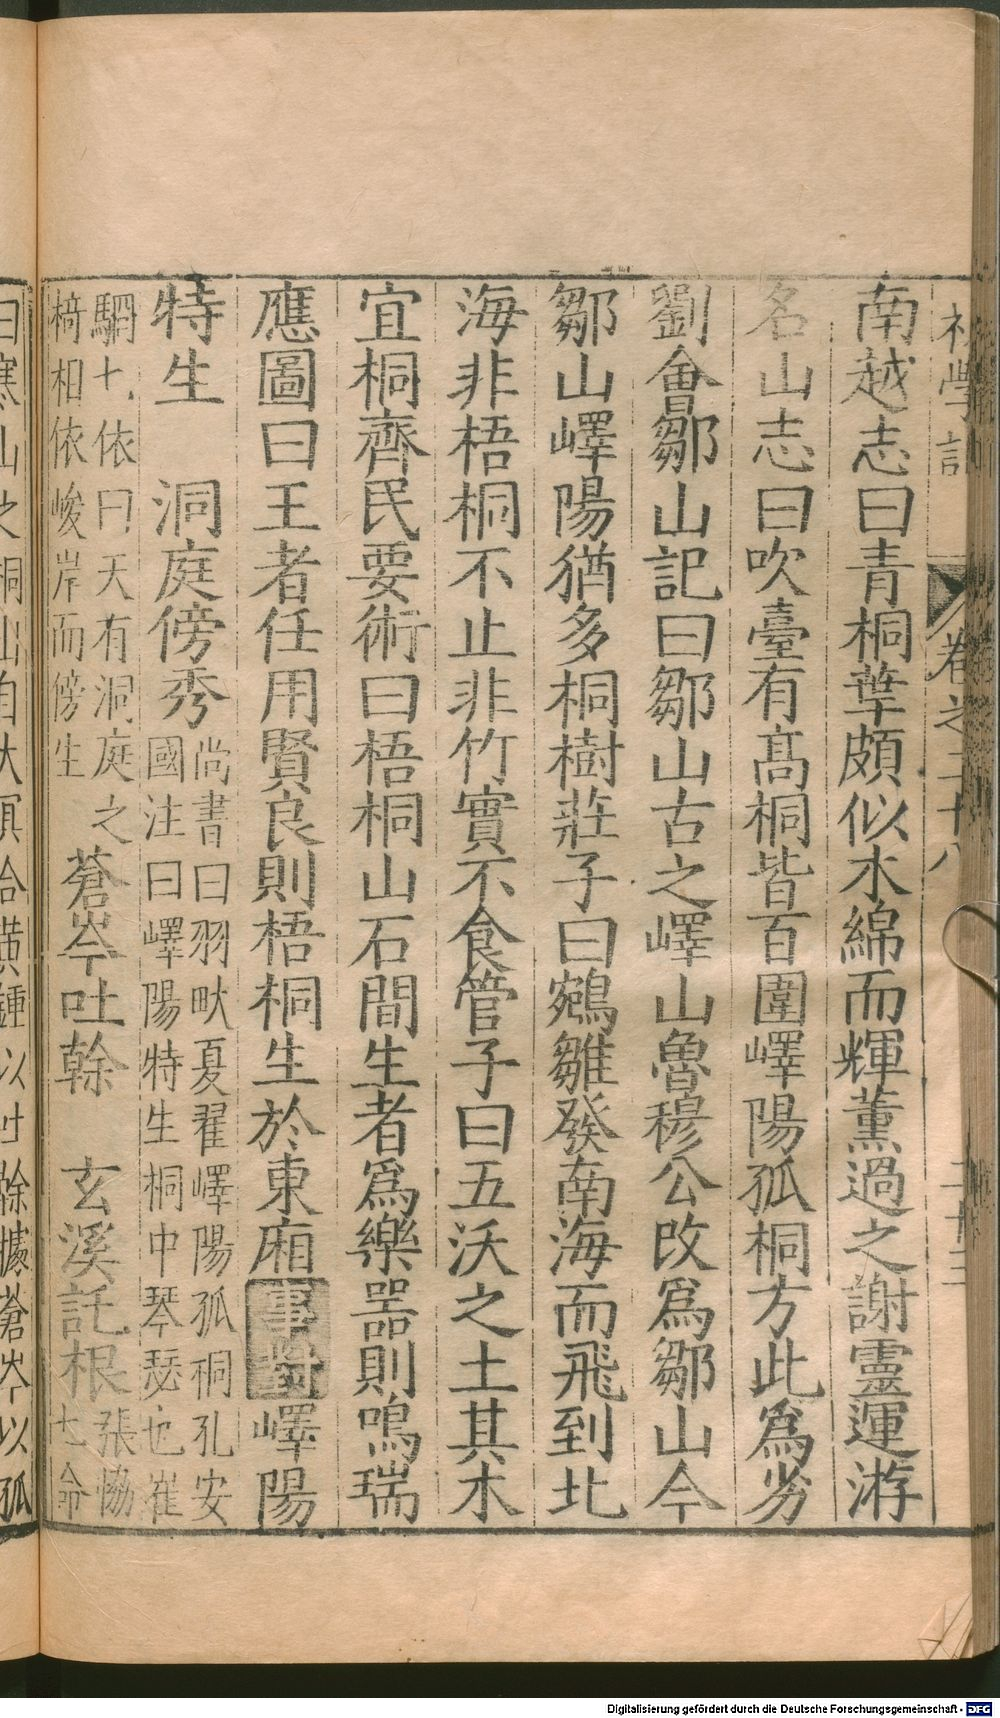 初學記 卷之二十八 二十三
南越志曰青桐葉頗似水綿而輝薰過之謝靈運游
名山志曰吹臺有高桐皆百圍嶧陽孤桐方此爲劣
劉會鄒山記曰鄒山古之嶧山魯穆公改爲鄒山今
鄒山嶧陽猶多桐樹莊子曰鵷雛發南海而飛到北
海非梧桐不止非竹實不食管子曰五沃之土其木
宜桐齊民要術曰梧桐山石間生者爲樂器則鳴瑞
應圖曰王者任用賢良則梧桐生於東廂事對嶧陽
特生 洞庭傍秀尚書曰羽畎夏翟嶧陽孤桐孔安
國注曰嶧陽特生桐中琴瑟也崔
駰七依曰天有洞庭之
椅相依峻岸而傍生蒼岑吐幹 玄溪託根張協
七命
曰寒山之桐出自太冥含黃鍾以吐幹據蒼岑以孤
Digitalisierung gefördert durch die Deutsche Forschungsgemeinschaft - DFG